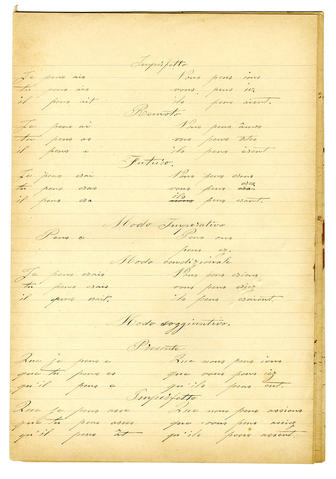 Imperfetto
Je pens ais Nous pens ions
tu pens ais vous pens iez
il pens ait ils pens aient.
Remoto
Je pens ai Nous pens âmes
tu pens as vous pens âtes
il pens a ils pens èrent
Futuro.
Je pens erai Nous pens erons
tu pens eras vous pens erez
il pens era ils pens eront.
Modo Imperativo
Pens e Pens ons
pens ez.
Modo condizionale
Je pens erais Nous pens erions
tu pens erais vous pens eriez
il pens erait. ils pens eraient
Modo soggiuntivo.
Presente
Que je pens e Que nous pens ions
que tu pens es que vous pens iez
qu'il pens e qu'ils pens ent.
Imperfetto
Que je pens asse Que nous pens assions
que tu pens asses que vous pens assiez
qu'il pens ât qu'ils pens assent.